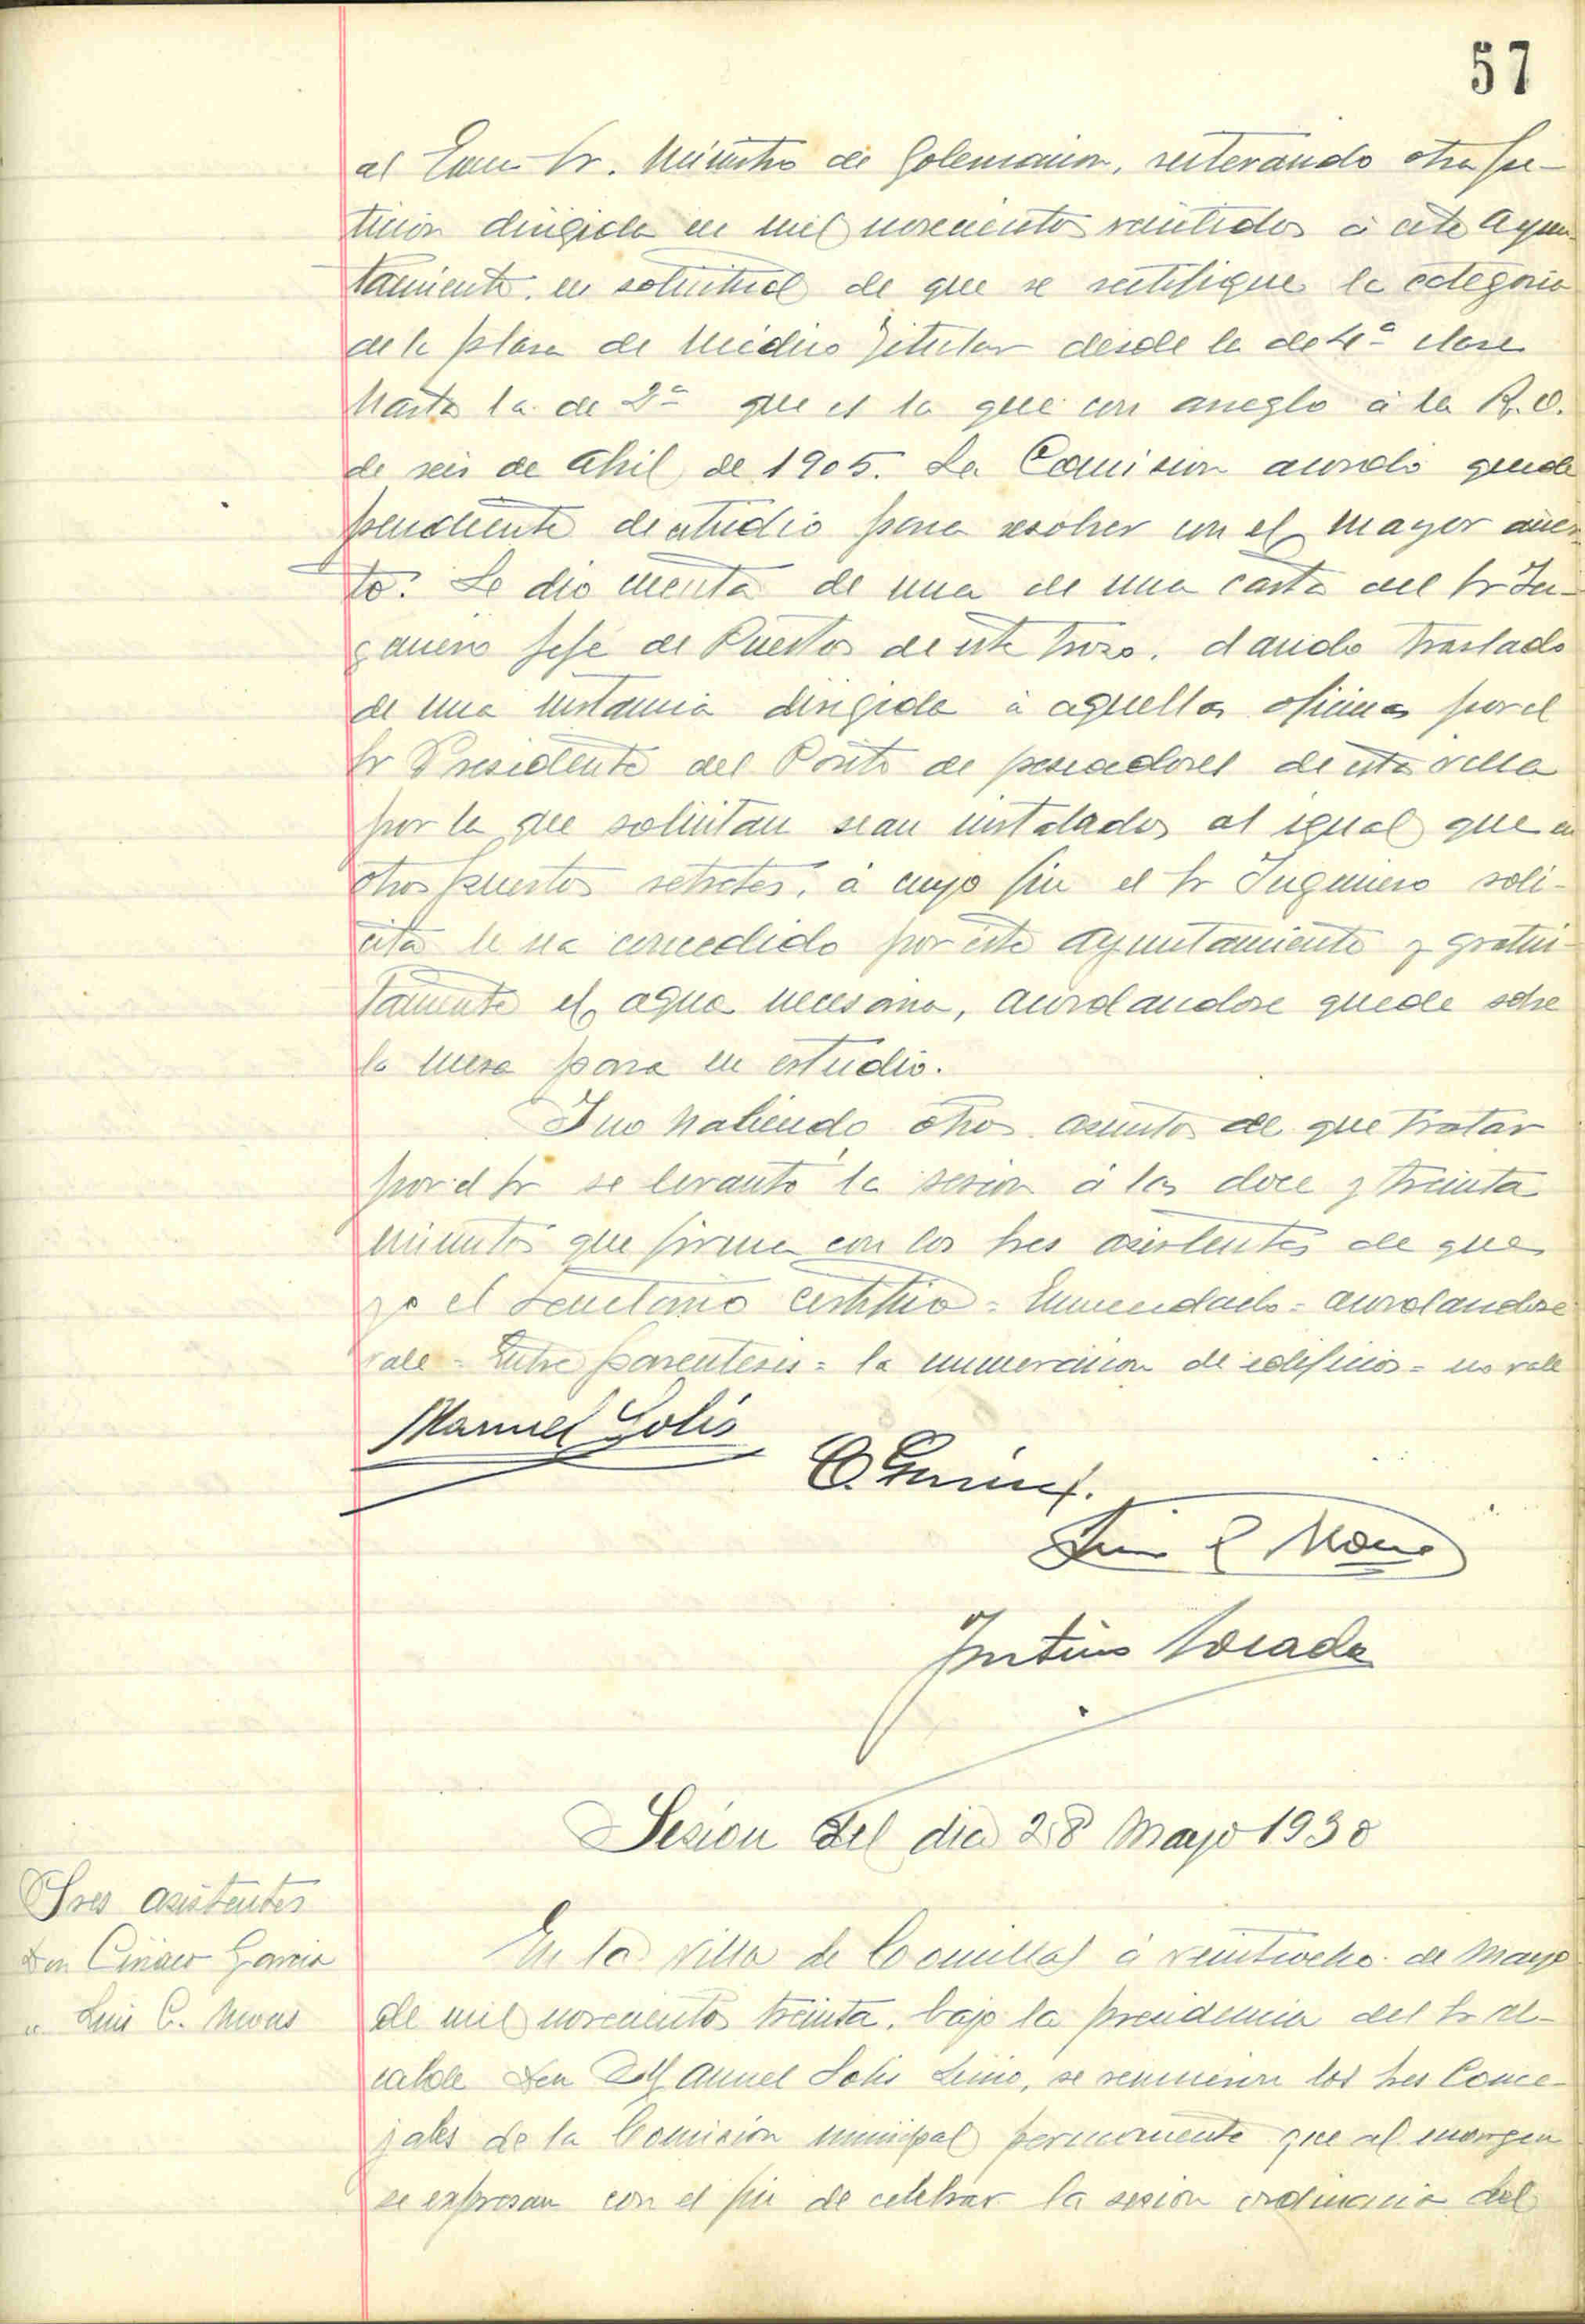 57
al Excmo Sr. Ministro de Gobernacion, reiterando otra pe-
ticion dirigida en mil novecientos veintidos á este Ayun-
tamiento, en solicitud de que se rectifique la categoria
de la plaza de Médico Titular desde la de 4ª clase
hasta la de 2ª que es la que con arreglo á la R.O.
de seis de Abril de 1905. La Comision acordó quede
pendiente de estudio para resolver con el mayor acier-
to. Se dio cuenta de una de una carta del Sr In-
geniero Jefe de Puertos de este trozo, dando traslado
de una instancia dirigida á aquellas oficinas por el
Sr Presidente del Posito de pescadores de esta villa
por la que solicitan sean instalados al igual que en
otros puertos retretes, á cuyo fin el Sr Ingeniero soli-
cita le sea concedido por este Ayuntamiento y gratui-
tamente el agua necesaria, acordandose quede sobre
la mesa para su estudio.
Y no habiendo otros asuntos de que tratar
por el Sr se levantó la sesion á las doce y treinta
minutos que firma con los Sres asistentes de que
yo el Secretario certifico = Enmendado = acordandose
vale = Entre parentesis = la numeracion de edificios = no vale
Manuel Solis
Sesion del dia 28 Mayo 1930
Sres asistentes
Don Ciriaco Garcia
" Luis C.
En la Villa de Comillas á veintiocho de Mayo
de mil novecientos treinta, bajo la presidencia del Sr Al-
calde Don Manuel Solis, se reunieron los Sres Conce-
jales de la Comision municipal permanente que al margen
se expresan con el fin de celebrar la sesion ordinaria del